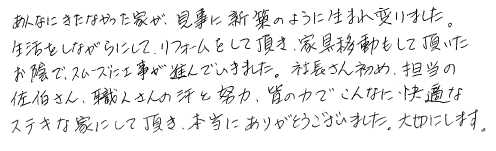 あんなにきたなかった家が、見事に新築のように生まれ変りました。
生活をしながらにして、リフォームをして頂き、家具移動もして頂いた
お陰で、スムーズに工事が進んでいきました。社長さん初め、担当の
佐伯さん、職人さんの汗と努力、皆の力でこんなに快適な
ステキな家にして頂き、本当にありがとうございました。大切にします。